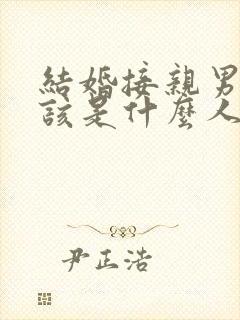 結婚接親男
該是什麼人
尹正浩